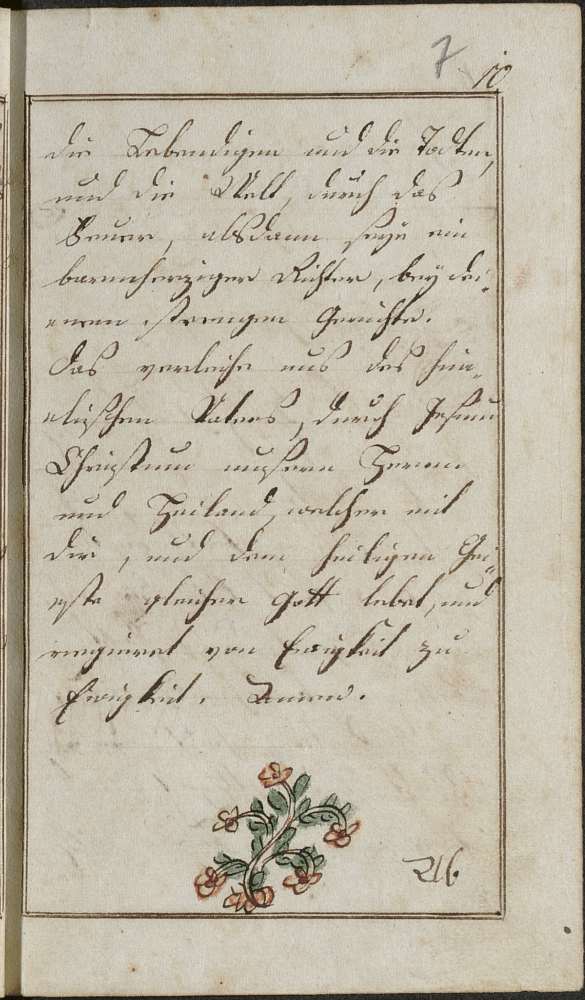 7
10
die Lebendigen und die Todten,
und die Welt, durch das
Feuer, alsdann seye ein
barmherziger Richter, bey dei„
enem strengen Gerichte.
Das verleihe uns des him„
elischen Vaters, durch Jesum
Christum unsern Herrn
und Heiland, welcher mit
dir, und dem heiligen Gei„
yste gleicher Gott lebet, und
regieret von Ewigkeit zu
Ewigkeit. Amen.